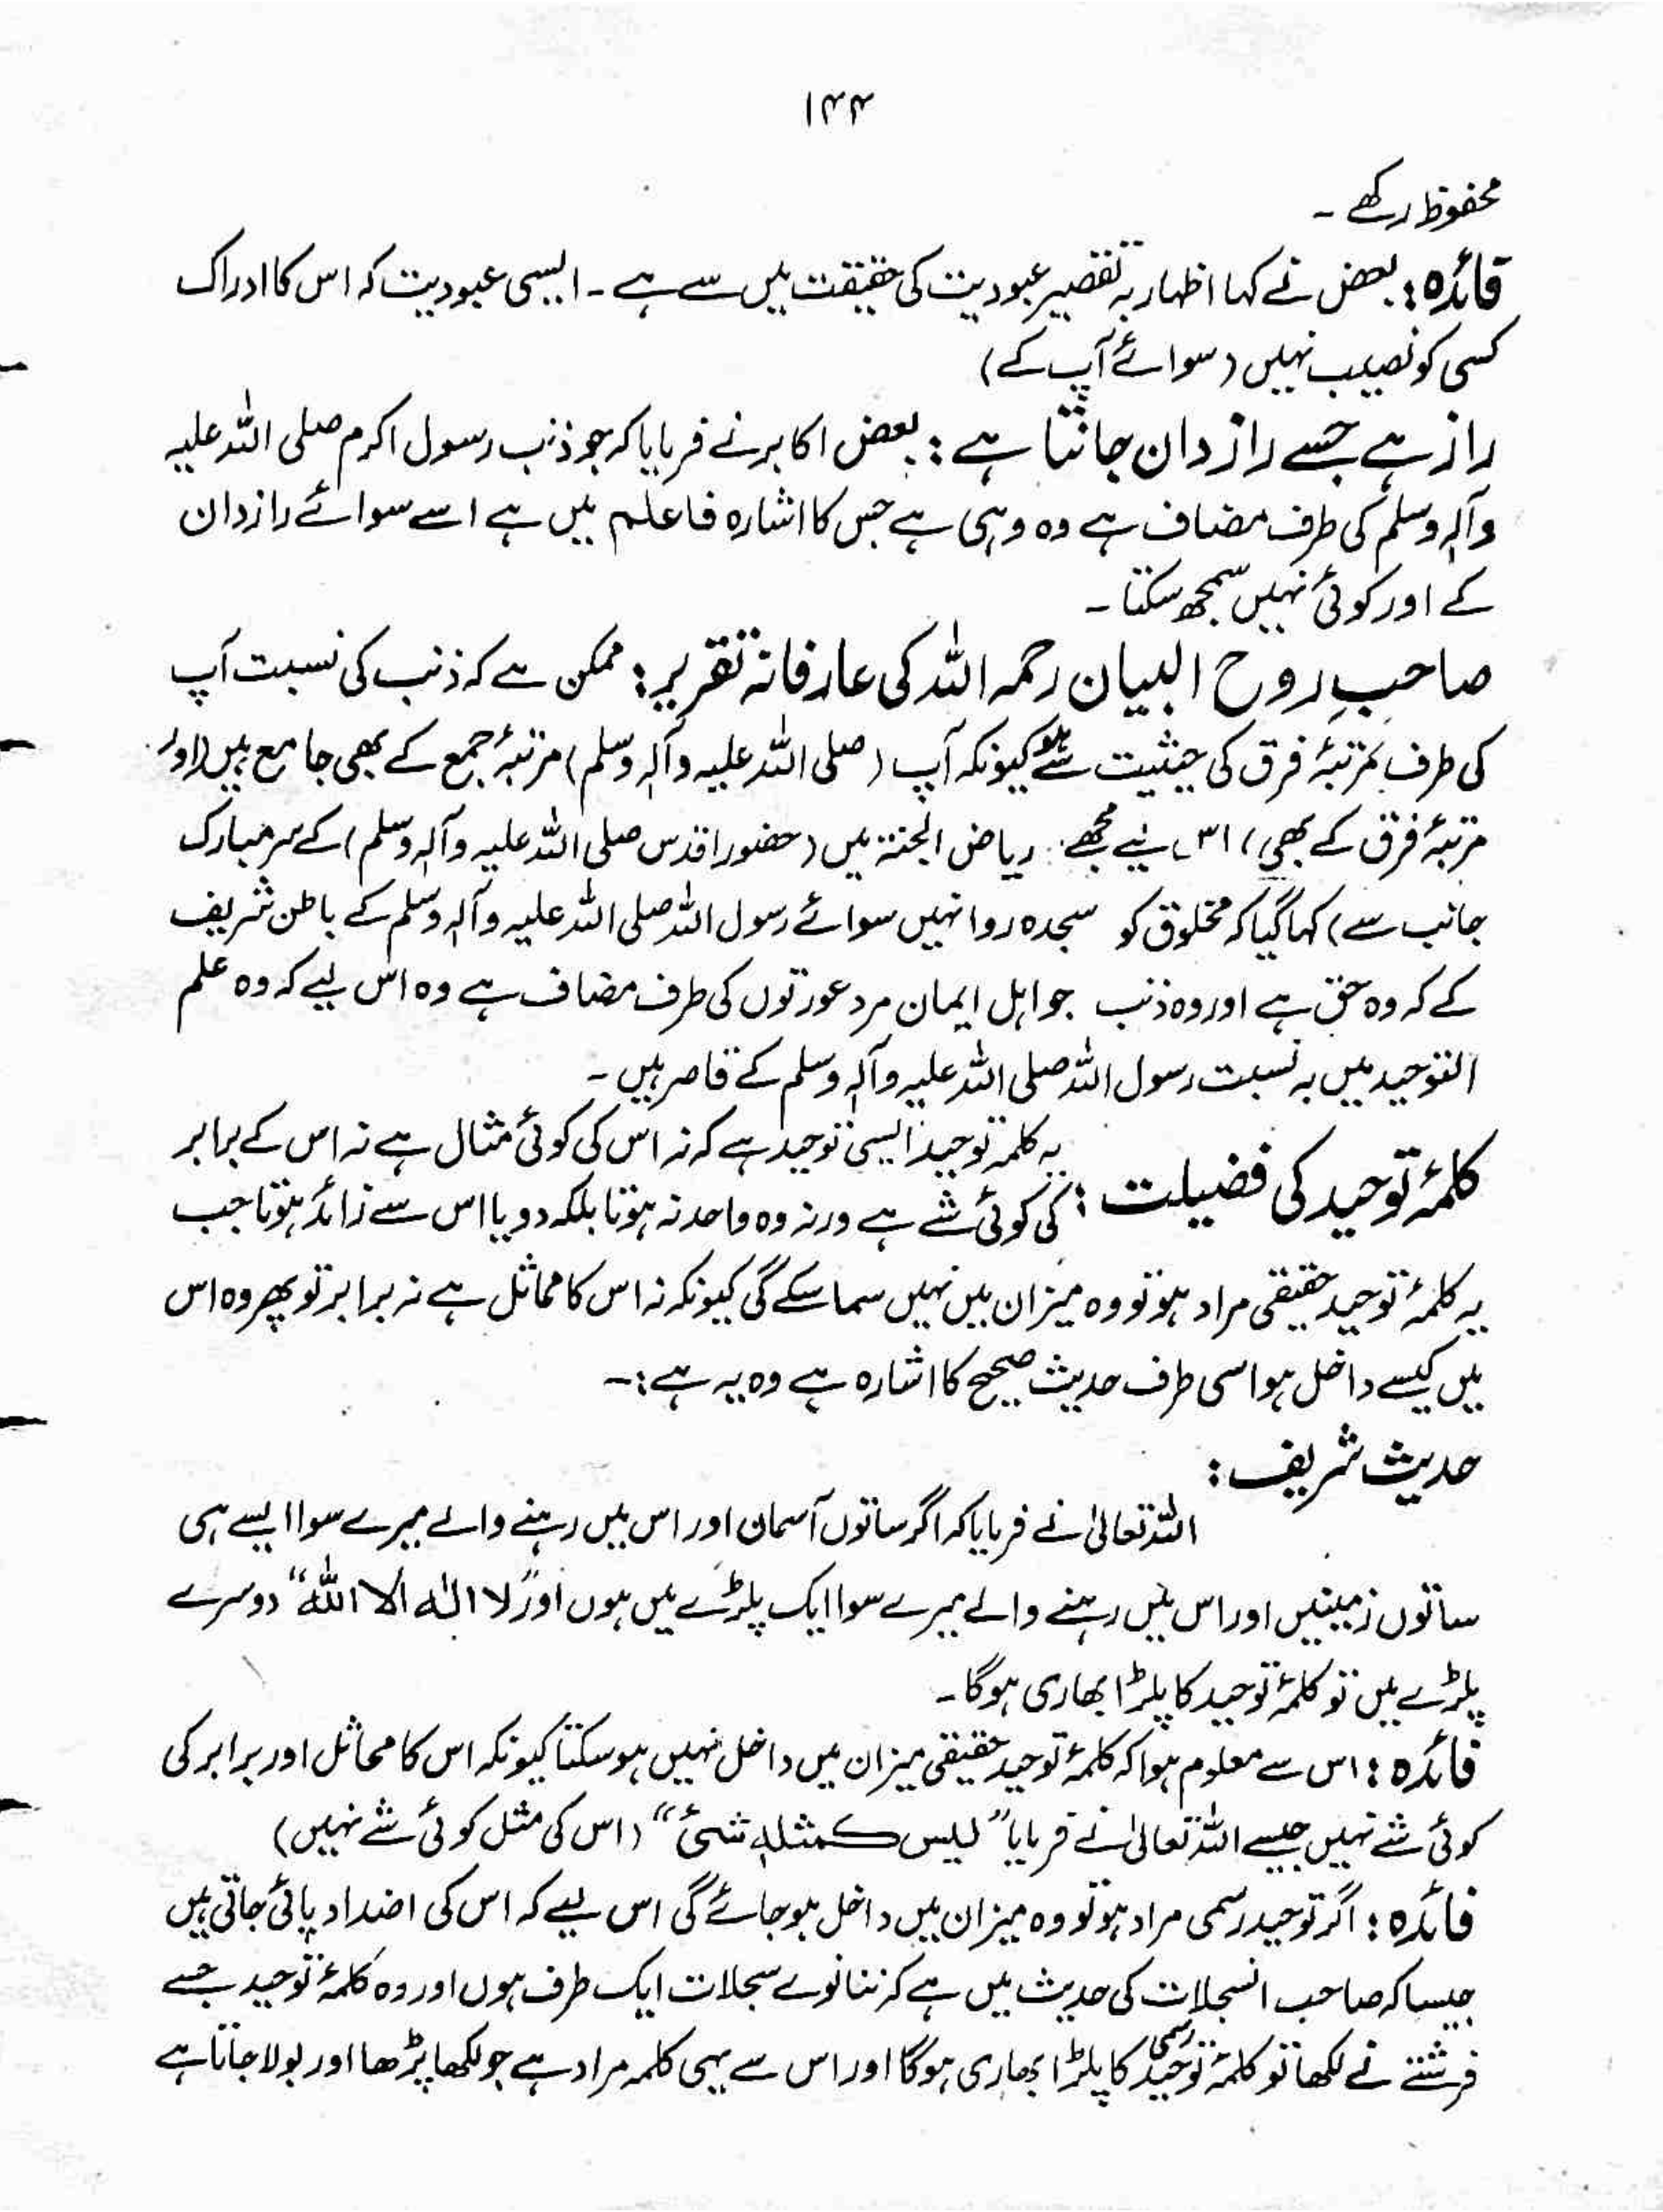 ۱۴۴
محفوظ رکھے ۔
فائدہ : بعض نے کہا اظہار بہ تقصیر عبودیت کی حقیقت میں سے ہے ۔ ایسی عبودیت کہ اس کا ادراک
کسی کو نصیب نہیں (سوائے آپ کے)
راز ہے جسے راز دان جانتا ہے : بعض اکابر نے فرمایا کہ جو ذنب رسول اکرم صلی اللہ علیہ
وآلہٖ وسلم کی طرف مضاف ہے وہ وہی ہے جس کا اشارہ فاعلم میں ہے اسے سوائے رازدان
کے اور کوئی نہیں سمجھ سکتا ۔
صاحبِ روح البیان رحمہ اللہ کی عارفانہ تقریر : ممکن ہے کہ ذنب کی نسبت آپ
کی طرف بمرتبۂ فرق کی حیثیت سے ہو کیونکہ آپ (صلی اللہ علیہ وآلہٖ وسلم) مرتبۂ جمع کے بھی جامع ہیں (اور
مرتبۂ فرق کے بھی) اس لیے مجھے ریاض الجنۃ میں (حضور اقدس صلی اللہ علیہ وآلہٖ وسلم) کے سر مبارک
جانب سے) کہا گیا کہ مخلوق کو سجدہ روا نہیں سوائے رسول اللہ صلی اللہ علیہ وآلہٖ وسلم کے باطن شریف
کے کہ وہ حق ہے اور وہ ذنب جو اہل ایمان مرد عورتوں کی طرف مضاف ہے وہ اس لیے کہ وہ علم
التوحید میں بہ نسبت رسول اللہ صلی اللہ علیہ وآلہٖ وسلم کے قاصر ہیں ۔
کلمۂ توحید کی فضیلت : یہ کلمہ توحید ایسی توحید ہے کہ نہ اس کی کوئی مثال ہے نہ اس کے برابر
کی کوئی شے ہے ورنہ وہ واحد نہ ہوتا بلکہ دو یا اس سے زائد ہوتا جب
یہ کلمۂ توحید حقیقی مراد ہو تو وہ میزان میں نہیں سما سکے گی کیونکہ نہ اس کا مماثل ہے نہ برابر تو پھر وہ اس
میں کیسے داخل ہو اسی طرف حدیث صحیح کا اشارہ ہے وہ یہ ہے :-
حدیث شریف :
اللہ تعالیٰ نے فرمایا کہ اگر ساتوں آسمان اور اس میں رہنے والے میرے سوا ایسے ہی
ساتوں زمینیں اور اس میں رہنے والے میرے سوا ایک پلڑے میں ہوں اور "لا الٰہ الا اللہ" دوسرے
پلڑے میں تو کلمۂ توحید کا پلڑا بھاری ہوگا ۔
فائدہ : اس سے معلوم ہوا کہ کلمۂ توحید حقیقی میزان میں داخل نہیں ہو سکتا کیونکہ اس کا مماثل اور برابر کی
کوئی شے نہیں جیسے اللہ تعالیٰ نے فرمایا "لیس کمثلہٖ شیٔ" (اس کی مثل کوئی شے نہیں)
فائدہ : اگر توحید رسمی مراد ہو تو وہ میزان میں داخل ہو جائے گی اس لیے کہ اس کی اضداد پائی جاتی ہیں
جیسا کہ صاحب السجلات کی حدیث میں ہے کہ ننانوے سجلات ایک طرف ہوں اور وہ کلمۂ توحید جسے
فرشتے نے لکھا تو کلمۂ توحید رسمی کا پلڑا بھاری ہوگا اور اس سے یہی کلمہ مراد ہے جو لکھا پڑھا اور بولا جاتا ہے